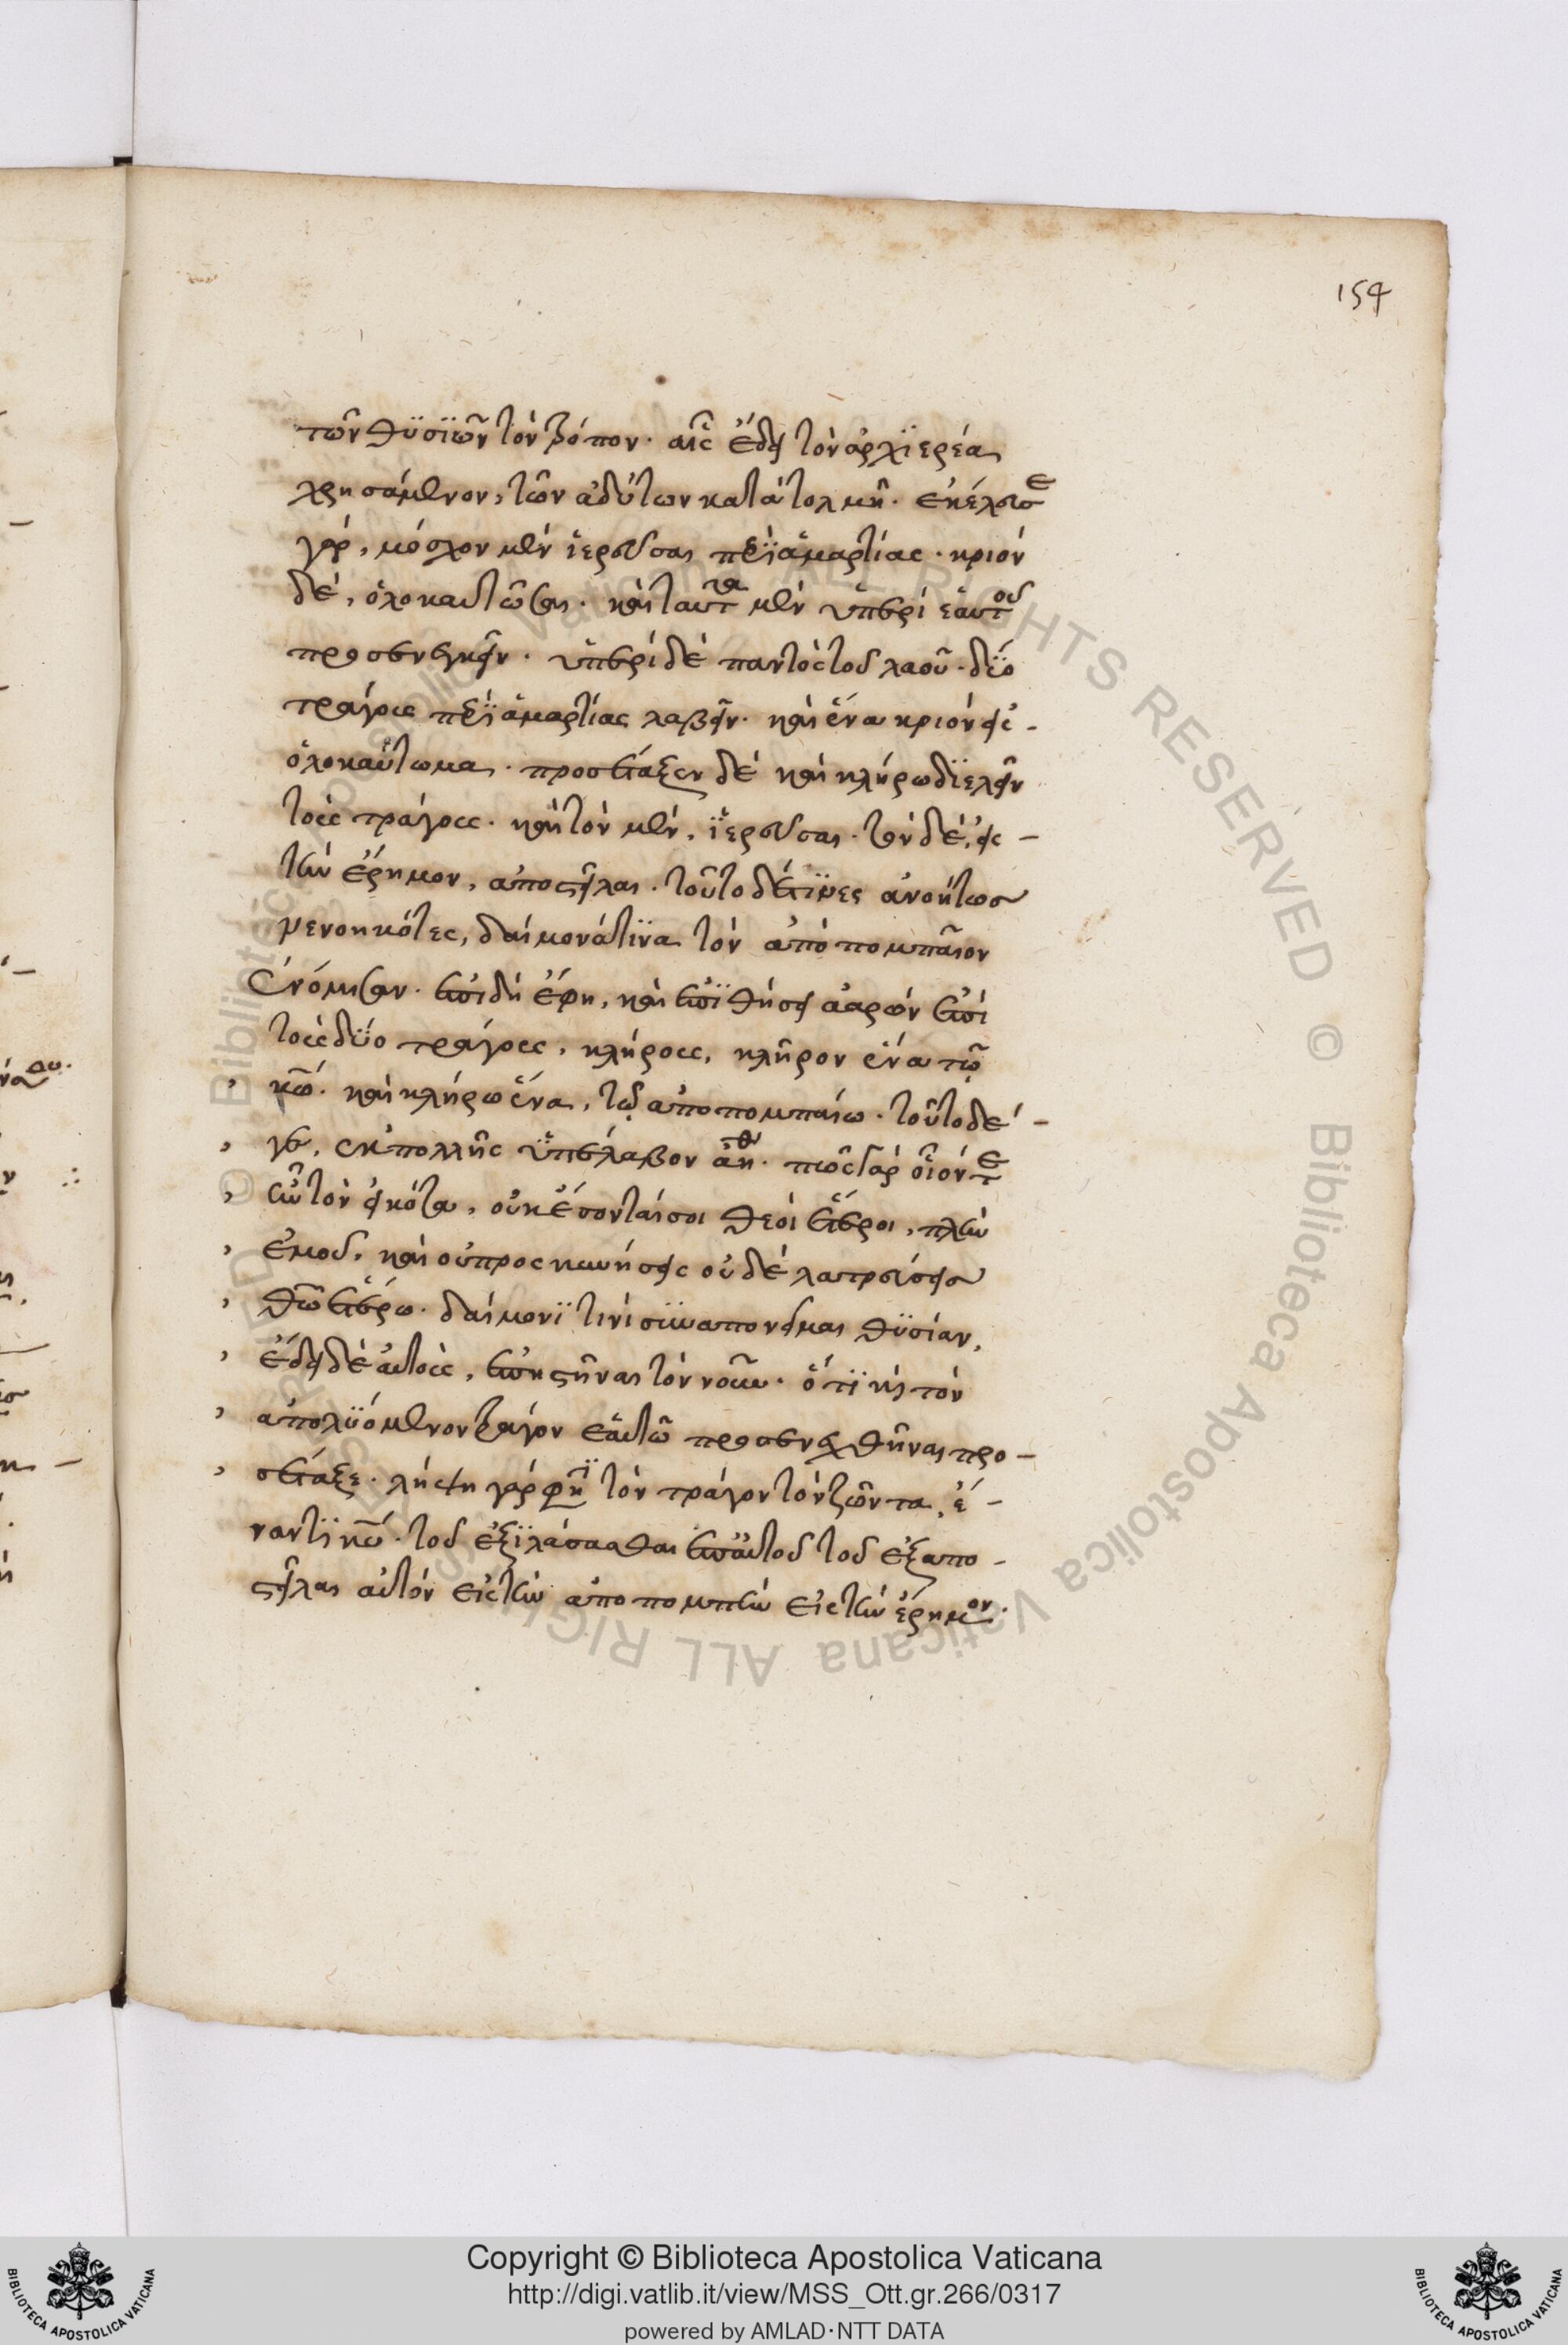 154
τῶν θϋσϊῶν τὸν τρόπον· αἷς ἔδει τὸν ἀρχϊερέα
χρησάμενον, τῶν ἀδύτων κατατολμᾶν. ἐκέλευσε
γὰρ, μόσχον μὲν ἱερεῦσαι περϊ ἁμαρτίας· κριὸν
δὲ, ὁλοκαυτῶσαι· καὶ ταῦτα μὲν ὑπὲρ ἑαυτοῦ
προσενεγκεῖν· ὑπὲρ δὲ παντὸς τοῦ λαοῦ· δϋο
τράγους περϊ ἁμαρτίας λαβεῖν· καὶ ἕνα κριὸν εἰ-
ὁλοκαύτωμα· προστάξεν δὲ καὶ κλήρω διελεῖν
τοὺς τράγους· καὶ τὸν μὲν, ϊερεῦσαι· τὸν δὲ, εἰς -
τὴν ἔρημον, ἀποστεῖλαι· τοῦτο δέ τϊνες ἀνοήτως
νενοηκότες, δαίμονά τϊνα τὸν ἀποπομπαῖον
ἐνόμισαν· ἐπειδὴ ἔφη, καὶ ἐπϊθήσει ἀαρὼν ἐπὶ
τοὺς δϋο τράγους, κλήρους, κλῆρον ἕνα τῷ
κω· καὶ κλήρω ἕνα, τῷ ἀποπομπαίω· τοῦτο δέ -
γε, ἐκ πολλῆς ὑπέλαβον
πῶς γὰρ οἷόν τε
τὸν εἰκότα, οὐκ ἔσονταί σοι θεοὶ ἕτεροι, πλὴν
ἐμοῦ, καὶ οὐ προσκυνήσεις οὐδὲ λατρεύσεις
θῶ ἑτέρω· δαίμονϊ τινὶ συναπονεῖμαι θϋσίαν,
ἔδει δὲ αὐτοὺς, ἐπιστῆναι τὸν νοῦν· ὅτϊ καὶ τὸν
ἀπολϋόμενον τράγον ἑαυτῶ προσενεχθῆναι προ-
στάξε· λήψη γὰρ φησϊ τὸν τράγον τὸν ζῶντα, ἐ-
ναντϊ κω· τοῦ ἐξϊλάσασθαι ἐπ' αὐτοῦ τοῦ ἐξαπο-
στεῖλαι αὐτὸν εἰς τὴν ἀποπομπὴν εἰς τὴν ἔρημον·
Copyright © Biblioteca Apostolica Vaticana
http://digi.vatlib.it/view/MSS_Ott.gr.266/0317
powered by AMLAD·NTT DATA